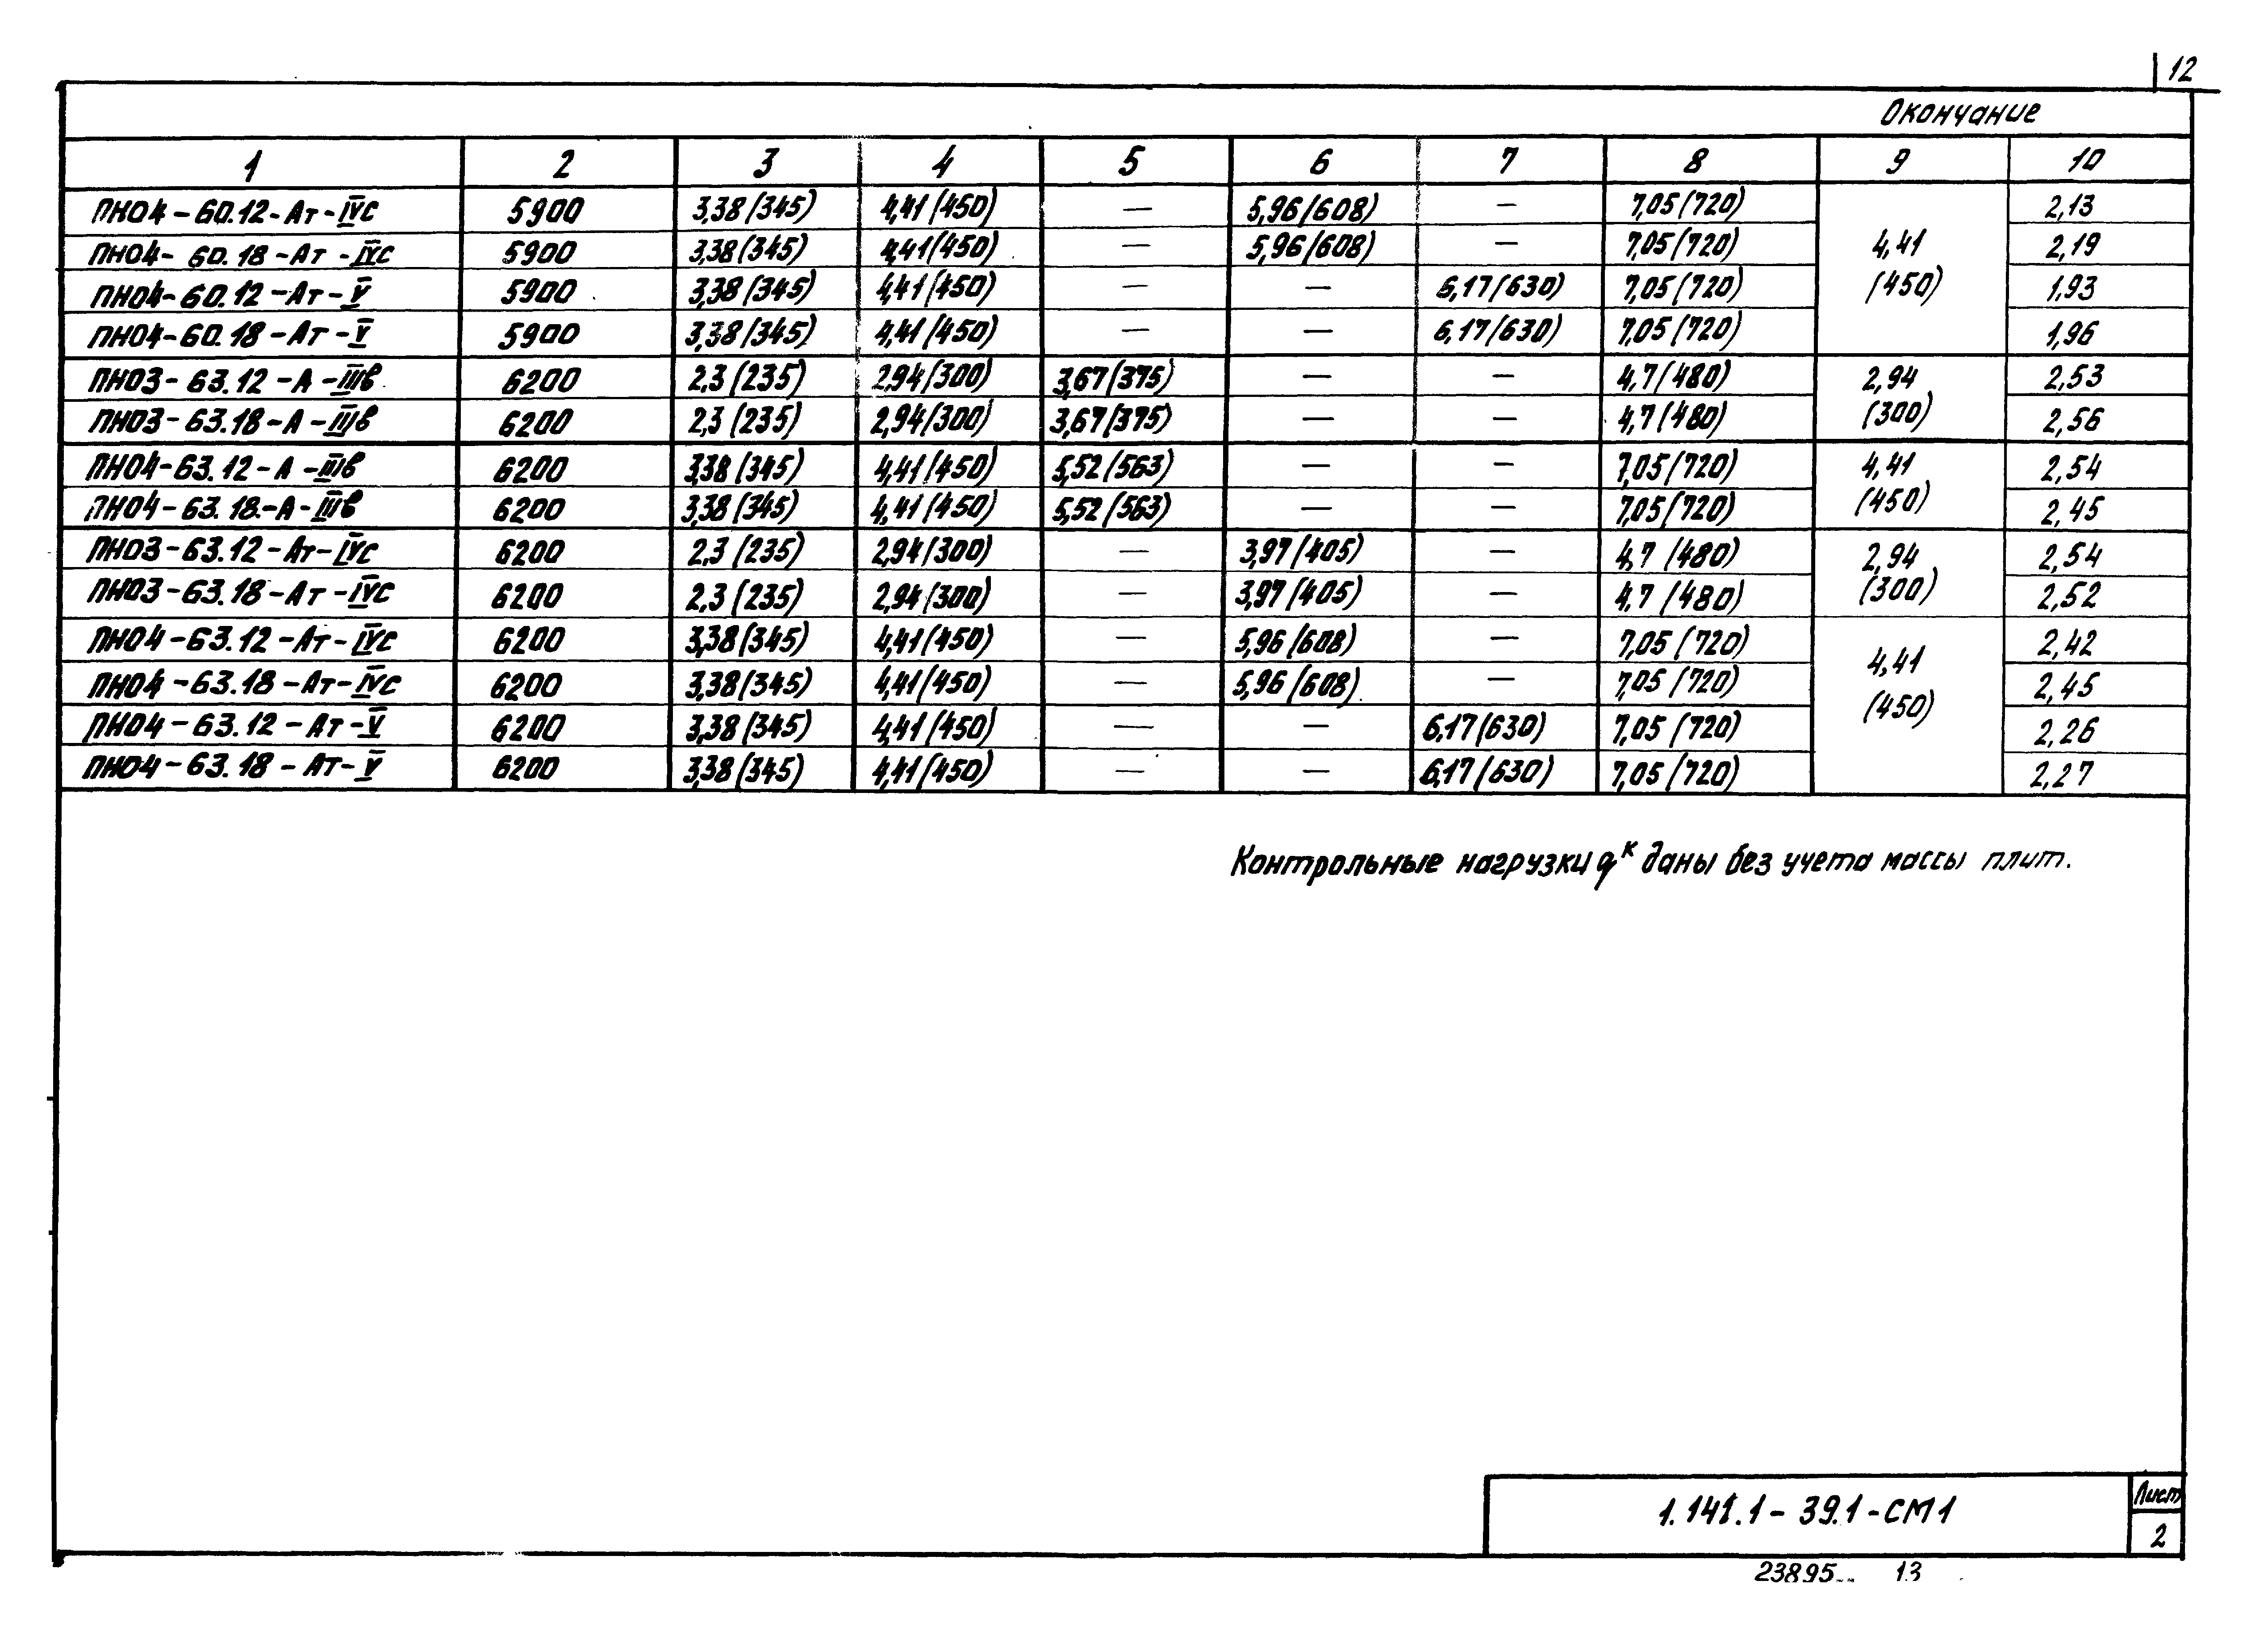 12
Окончание
1 2 3 4 5 6 7 8 9 10
ПНО4-60.12-Ат-IVС 5900 3,38(345) 4,41(450) — 5,96(608) — 7,05(720) 2,13
ПНО4-60.18-Ат-IVС 5900 3,38(345) 4,41(450) — 5,96(608) — 7,05(720) 4,41 2,19
ПНО4-60.12-Ат-V 5900 3,38(345) 4,41(450) — — 6,17(630) 7,05(720) (450) 1,93
ПНО4-60.18-Ат-V 5900 3,38(345) 4,41(450) — — 6,17(630) 7,05(720) 1,96
ПНО3-63.12-А-IIIв 6200 2,3(235) 2,94(300) 3,67(375) — — 4,7(480) 2,94 2,53
ПНО3-63.18-А-IIIв 6200 2,3(235) 2,94(300) 3,67(375) — — 4,7(480) (300) 2,56
ПНО4-63.12-А-IIIв 6200 3,38(345) 4,41(450) 5,52(563) — — 7,05(720) 4,41 2,54
ПНО4-63.18-А-IIIв 6200 3,38(345) 4,41(450) 5,52(563) — — 7,05(720) (450) 2,45
ПНО3-63.12-Ат-IVС 6200 2,3(235) 2,94(300) — 3,97(405) — 4,7(480) 2,94 2,54
ПНО3-63.18-Ат-IVС 6200 2,3(235) 2,94(300) — 3,97(405) — 4,7(480) (300) 2,52
ПНО4-63.12-Ат-IVС 6200 3,38(345) 4,41(450) — 5,96(608) — 7,05(720) 2,42
ПНО4-63.18-Ат-IVС 6200 3,38(345) 4,41(450) — 5,96(608) — 7,05(720) 4,41 2,45
ПНО4-63.12-Ат-V 6200 3,38(345) 4,41(450) — — 6,17(630) 7,05(720) (450) 2,26
ПНО4-63.18-Ат-V 6200 3,38(345) 4,41(450) — — 6,17(630) 7,05(720) 2,27
Контрольные нагрузки qᵏ даны без учета массы плит.
1.141.1-39.1-СМ1
Лист
2
23895 13